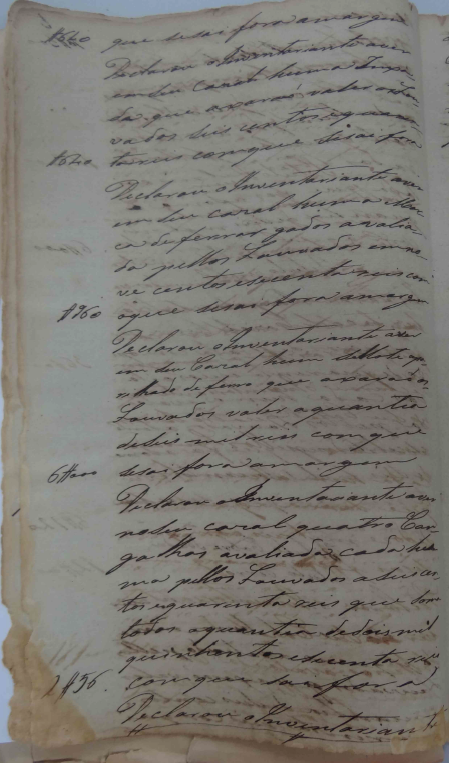 que se sai fora a margem
Declarou o Inventariante aver
em seu Casal huma
da que avaraõ valer os Lou
vados seis centos e quaren
ta reis com que se sai fora
$640
Declarou o Inventariante aver
em seu Casal huma Mar
ca de ferrar gados avalia
da pellos Louvados em no
ve centos e secenta reis com
o que se sai fora a margem
$960
Declarou o Inventariante aver
em seu Casal hum
de ferro que avaraõ os
Louvados valer a quantia
de seis mil reis com que
se sai fora a margem
6$000
Declarou o Inventariante aver
no seu casal quatro Can
galhas avaliada cada hu
ma pellos Louvados a seis cen
tos e quarenta reis que
todos a quantia de dois mil
quinhentos e secenta reis
com que sai fora
2$56
Declarou o Inventariante